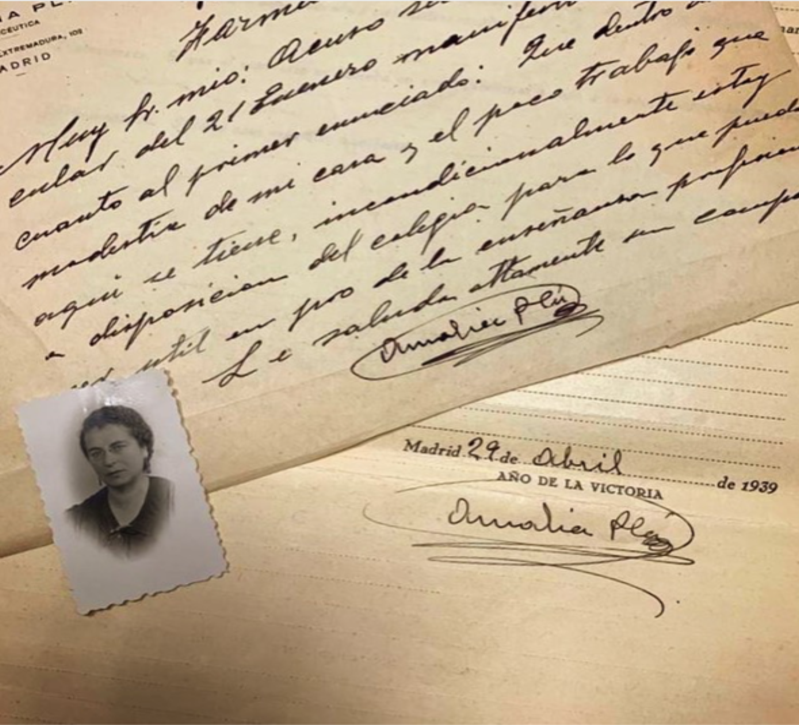 A PL
CÉUTICA
EXTREMADURA, 102
ADRID
Farma
Muy Sr. mio: Acuso
cular del 21 Enenero manifes
cuanto al primer enunciado: Que dentro
modestia de mi casa y el poco trabajo que
aqui se tiene, incondicionalmente estoy
a disposicion del colegio para lo que pueda
ser util en pro de la enseñanza profesion
Le saluda attamente su compa
Amalia Plá
Madrid 29 de Abril de 1939
AÑO DE LA VICTORIA
Amalia Plá